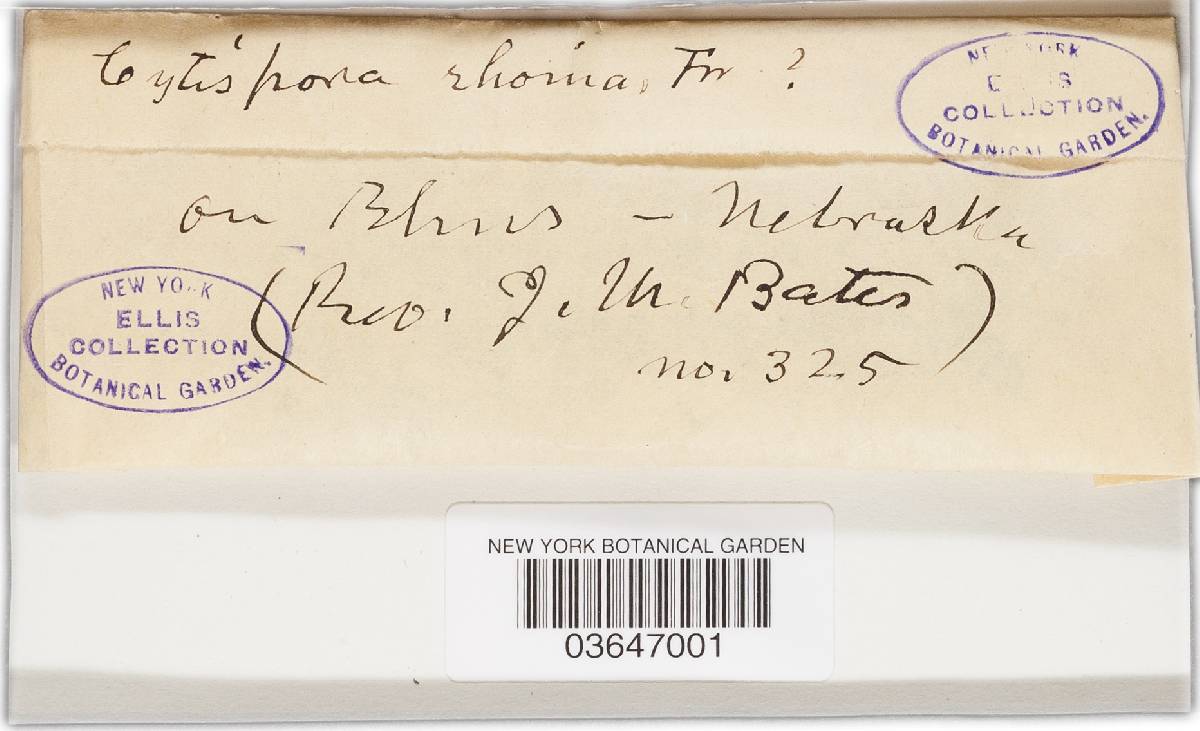 Cytispora rhoina, Fr ?
NEW YORK
ELLIS
COLLECTION
BOTANICAL GARDEN.
on Rhus – Nebraska
(Rev. J. M. Bates)
no. 325
NEW YORK
ELLIS
COLLECTION
BOTANICAL GARDEN.
NEW YORK BOTANICAL GARDEN
03647001